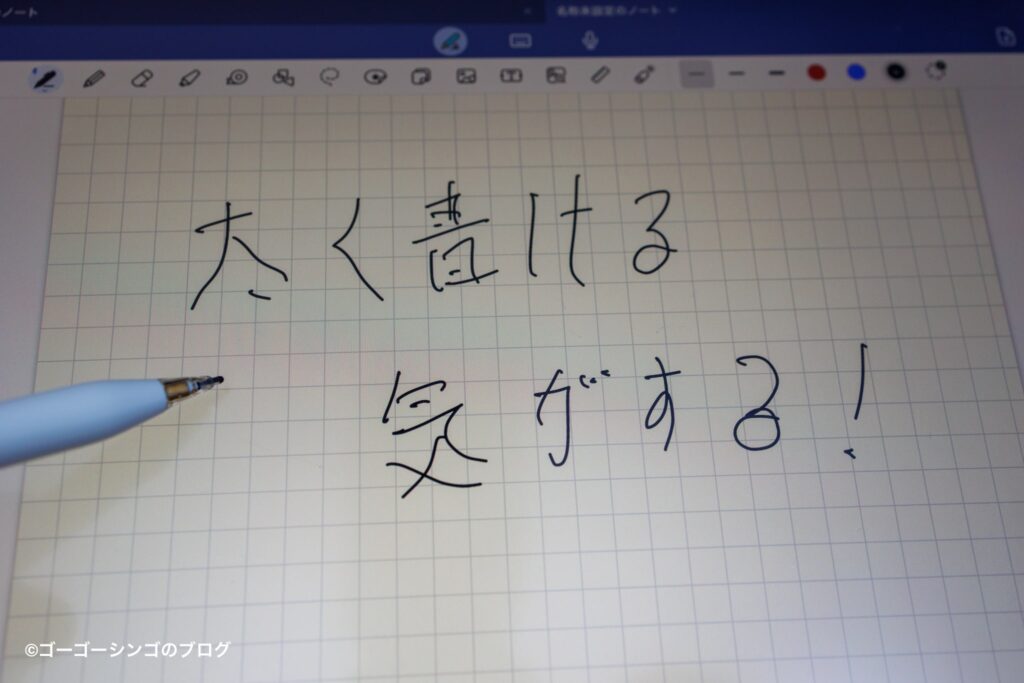 ノート
名称未設定のノート
太く書ける
気がする!
©ゴーゴーシンゴのブログ